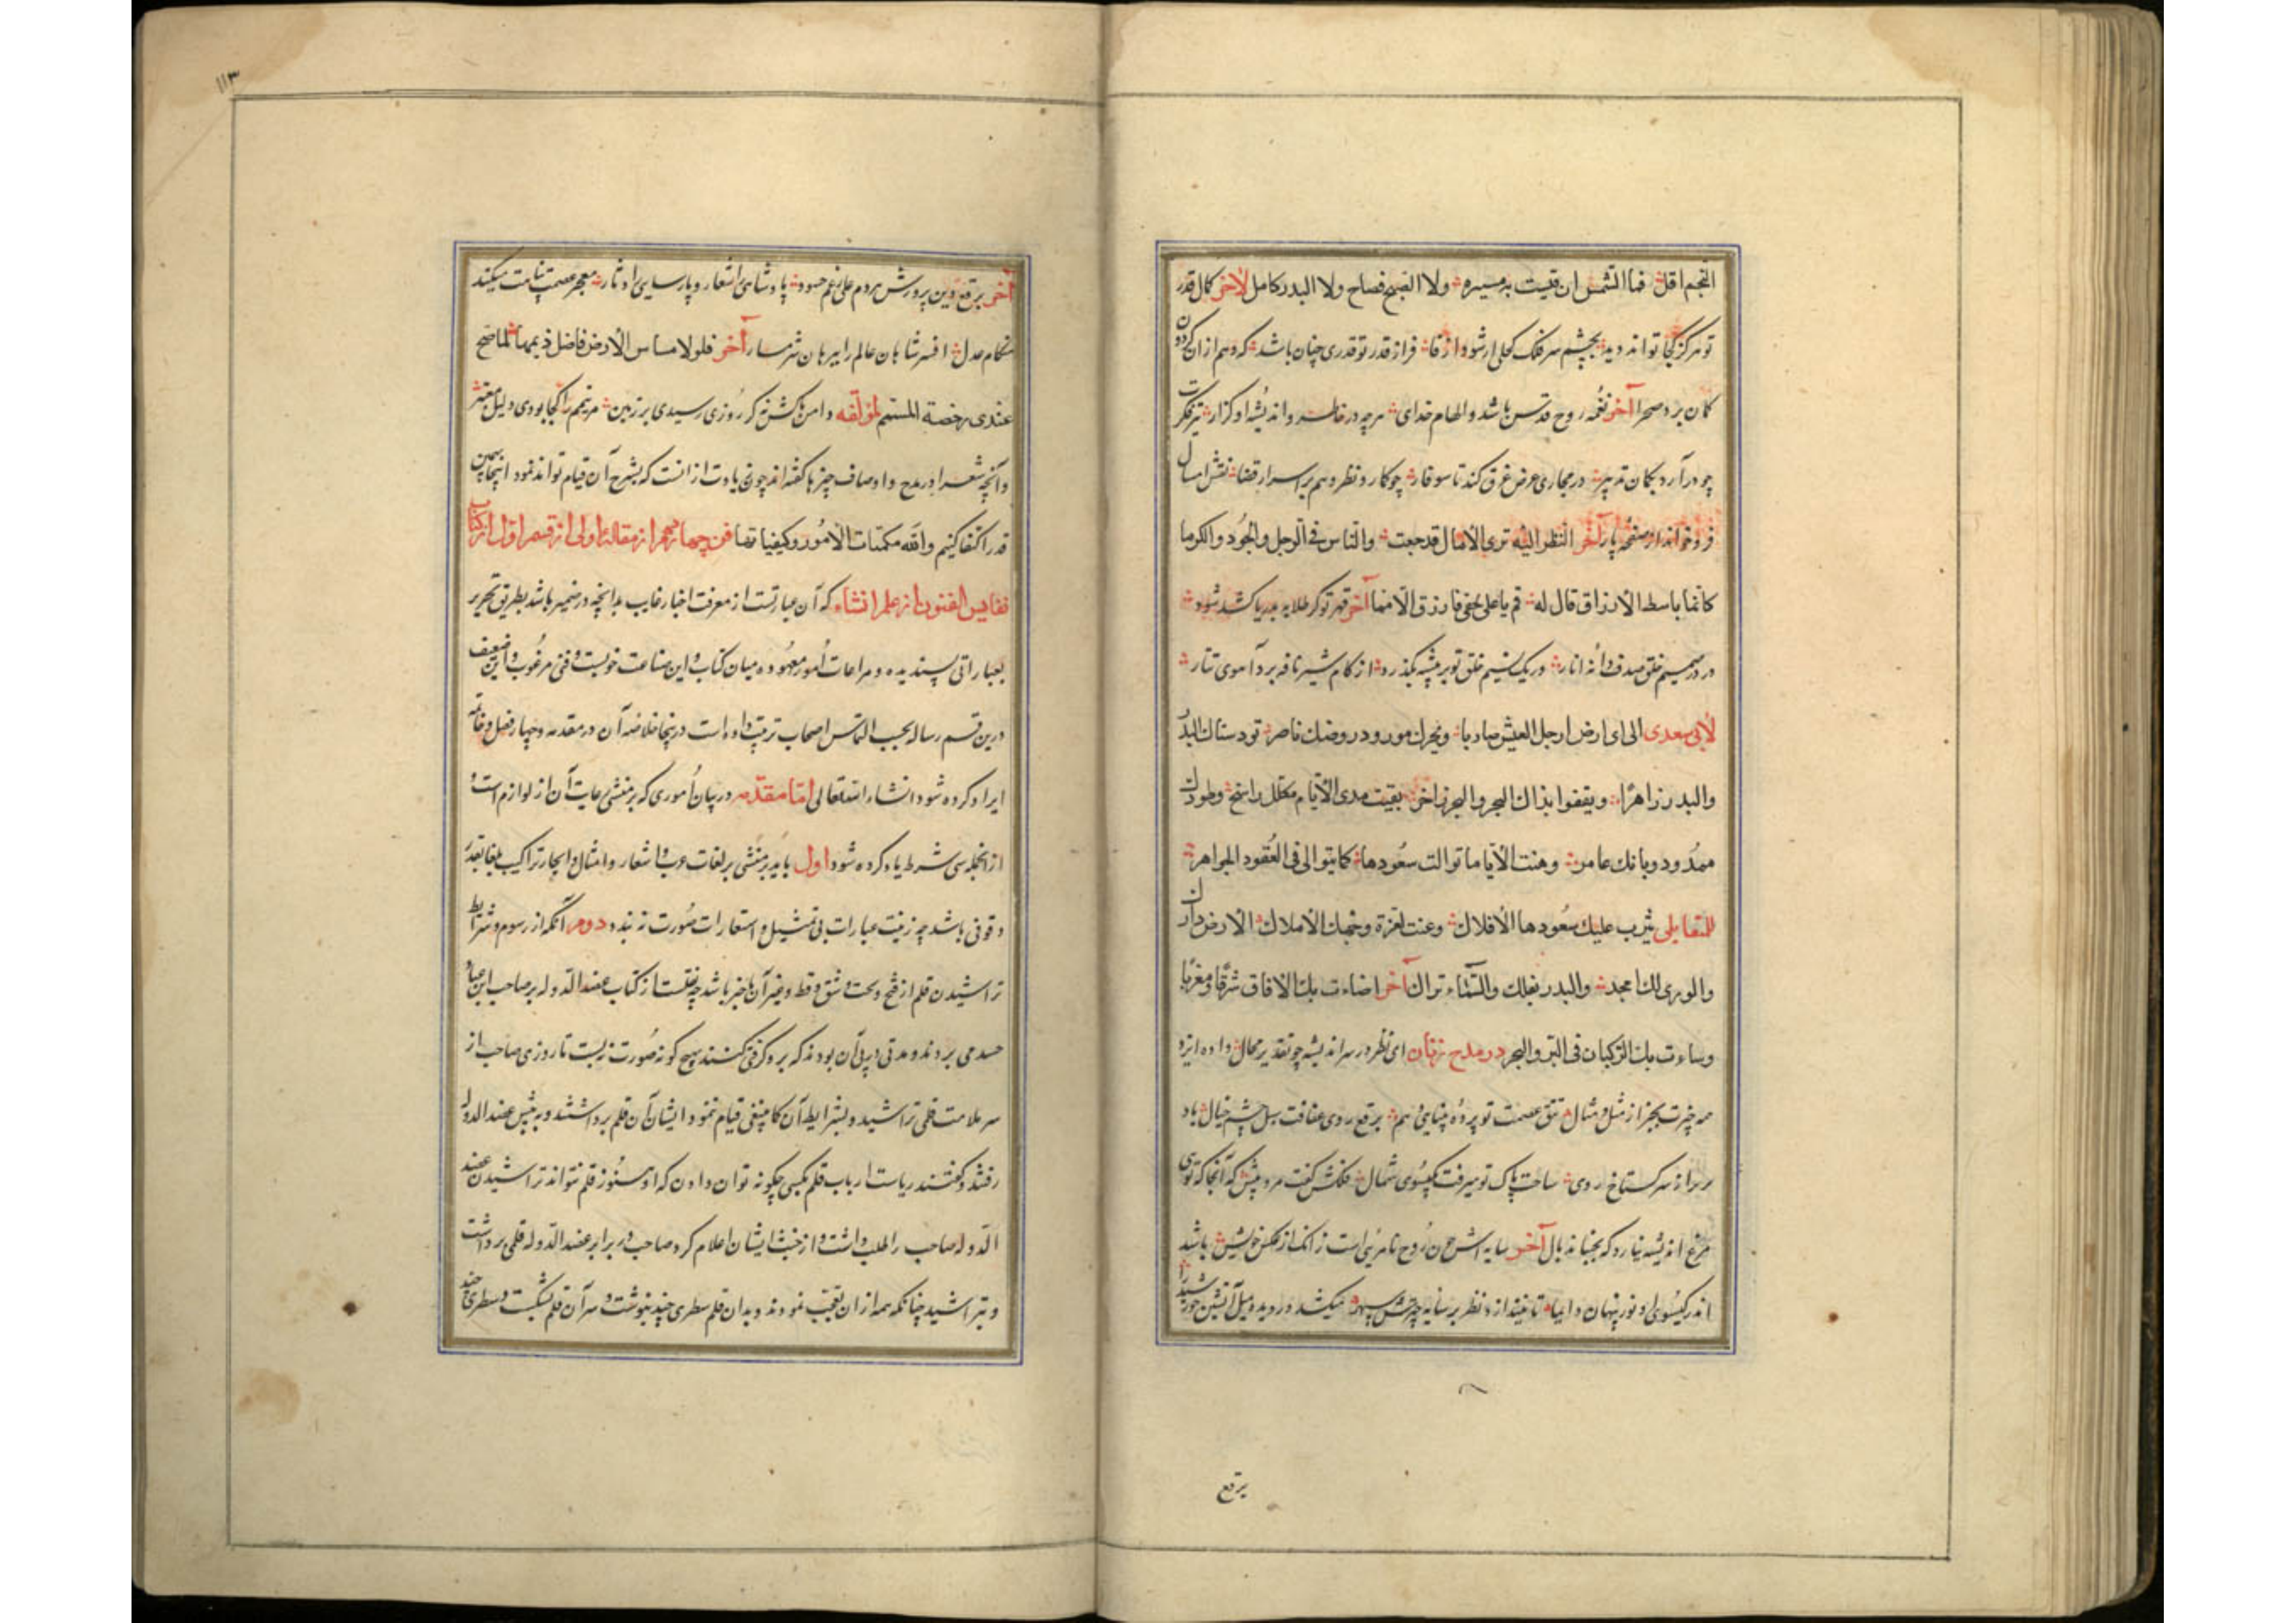 النجم اقل فما الشمس ان قیست به مسیره ولا الصبح فصاح ولا البدر کامل لاخر کمال قدر
تو مرکز کجا تواند دید بچشم سر فلک کحلی ار شود فراز قدر تو قدری چنان باشد که وهم از ان
کمان برد صحرا آخر نغمه روح قدس باشد والهام خدای هرچه در خاطر واندیشه او کزار تیر فکرت
چو در آرد بکمان تدبیر در مجاری عرض غرق کند تا سوفار چو کمارد نظر وهم بر اسرار قضا نقش امسال
فرو خواند از صفحه پار آخر انظر الیه تری الامال قد جعت والناس فی الوجل والجود والکرما
کانما باسط الارزاق قال له قم یا علی فارزق الامما آخر قهر تو کر طلایه بدریا کشد شود
در در صمیم حلق صدف دانه انار ور یک نسیم خلق تو بر بیشه بکذرد از کام شیر نافه برد آهوی تتار
لابی سعدی الی ای ارض ارجل العیش صادیا وبحرک مورود وروضک ناضر
والبدر زاهرا ویقفوا بذاک البحر والبحر زاخر بقیت مدی الایام راسخ وطودک
ممدود وبابک عامر وهنت الایام ما توالت سعودها کما یتوالی فی العقود الجواهر
علیک سعودها الافلاک وعنت لعزة وجهک الاملاک الارض دارک
والوری لک امجد والبدر نعلک والسماء تراک آخر اضاءت بک الافاق شرقا ومغربا
وساءت بک الرکبان فی البر والبحر در مدح زنان ای نظر در سر اندیشه چو تقدیر محال داده ایزد
همه چیزت بجز از مثل ومثال تتق عصمت تو پرده بینایی هم برقع روی عفافت سبل چشم خیال باد
روی ساحت پاک تو میرفت کیسوی شمال فلکش کفت مرو پیش که آنجا که توی
مرغ اندیشه نیارد که بجنباند بال آخر سایه اش چون روح نامرئی است زانک از عکس خویش باشد
اندر کیسوی او نور پنهان دایما تا نیندازد نظر بر سایه چترش سپهر میکشد در دیده میل آتشین خورشید را
برقع
۱۱۳
آخر برقع دین پرورش هردم علی رغم حسود پادشاهی اشعار وپارسایی را دثار معجر عصمت پناهت میکند
هنکام عدل افسر شاهان عالم را ببرهان شرمسار آخر فلولا مساس الارض فاضل ذیلها لما صح
عندی رخصة المتیمم لمؤلفه دامن پاکش نه کر روزی رسیدی بر زمین مر تیمم را کجا بودی دلیل معتبر
وآنچه شعرا در مدح واوصاف چیزها کفته اند چون زیادت از انست که بشرح آن قیام تواند نمود اینجا بهمین
قدر اکتفا کنیم والله مکنات الامور وکیفیاتها فن چهارم از مقاله اولی از قسم اول از کتاب
نفایس الفنون از علم انشاء که آن عبارتست از معرفت اخبار غایب بدانچه در ضمیر باشد بطریق تحریر
بعباراتی پسندیده ومراعات امور معهوده میان کتاب واین صناعت خوبست وفنی مرغوب واین ضعیف
درین قسم رساله بحسب التماس اصحاب ترتیب داده است درینجا خلاصه آن در مقدمه وچهار فصل وخاتمه
ایراد کرده شود انشاء الله تعالی اما مقدمه در بیان اموری که بر منشی رعایت آن از لوازم است
از انجمله سی شرط یاد کرده شود اول باید که منشی بر لغات عرب واشعار وامثال وایجاز تراکیب بلغا بقدر
وقوفی باشد چه زینت عبارات بی تمثیل واستعارات صورت نبندد دوم آنکه از رسوم وشرایط
تراشیدن قلم از فتح ونحت وشق وقط وغیر آن باخبر باشد چه نقلست از کتاب عضد الدوله بر صاحب ابن عباد
حسد می بردند ومدتی در پی آن بودند که برو کرفتی کنند هیچ کونه صورت نبست تا روزی صاحب از
سر ملامت قلمی تراشید وبشرایط آن کما ینبغی قیام ننمود ایشان آن قلم برداشتند وبه پیش عضد الدوله
رفتند وکفتند ریاست ارباب قلم بکسی چکونه توان دادن که او هنوز قلم نتواند تراشیدن عضد
الدوله صاحب را طلب داشت واز خبث ایشان اعلام کرد صاحب در برابر عضد الدوله قلمی برداشت
وبتراشید چنانکه همه از ان تعجب نمودند وبدان قلم سطری چند بنوشت وسر آن قلم بشکست وسطری چند